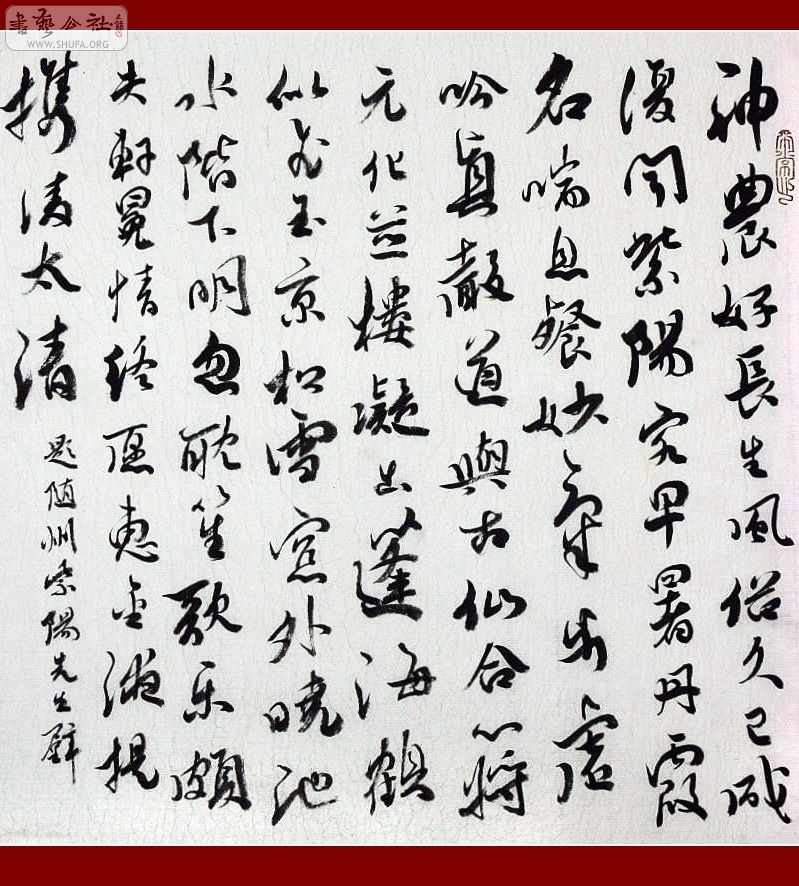 書藝公社
WWW.SHUFA.ORG
神農好長生風俗久已成
復聞紫陽客早署丹霞
名喘息餐妙氣步虛
吟真聲道與古仙合心將
元化並樓凝出蓬海鶴
似飛玉京松雪窓外曉池
水階下明忽耽笙歌乐頗
失軒冕情終願惠金液提
攜淩太清
題随州紫陽先生壁